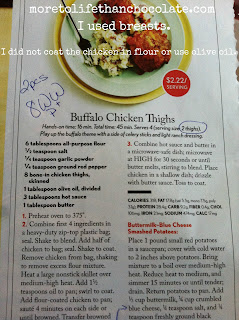 moretolifethanchocolate.com
I used breasts.
I did not coat the chicken in flour or use olive oil.
$2.22/
SERVING
2pcs
8WW
Buffalo Chicken Thighs
Hands-on time: 16 min. Total time: 45 min. Serves 4 (serving size: 2 thighs)
Play up the buffalo theme with a side of celery sticks and light ranch dressing.
6 tablespoons all-purpose flour
½ teaspoon salt
¼ teaspoon garlic powder
¼ teaspoon ground red pepper
8 bone-in chicken thighs,
skinned
1 tablespoon olive oil, divided
3 tablespoons hot sauce
1 tablespoon butter
1. Preheat oven to 375˚.
2. Combine first 4 ingredients in
a heavy-duty zip-top plastic bag;
seal. Shake to blend. Add half of
chicken to bag; seal. Shake to coat.
Remove chicken from bag, shaking
to remove excess flour mixture.
Heat a large nonstick skillet over
medium-high heat. Add 1½
teaspoons oil to pan; swirl to coat.
Add flour-coated chicken to pan;
sauté 4 minutes on each side or
until browned. Transfer browned
3. Combine hot sauce and butter in
a microwave-safe dish; microwave
at HIGH for 30 seconds or until
butter melts, stirring to blend. Place
chicken in a shallow dish; drizzle
with butter sauce. Toss to coat.
Buttermilk-Blue Cheese
Smashed Potatoes:
Place 1 pound small red potatoes
in a saucepan; cover with cold water
to 2 inches above potatoes. Bring
mixture to a boil over medium-high
heat. Reduce heat to medium, and
simmer 15 minutes or until tender;
drain. Return potatoes to pan. Add
½ cup buttermilk, ¼ cup crumbled
blue cheese, ¼ teaspoon salt, and ¼
teaspoon freshly ground black